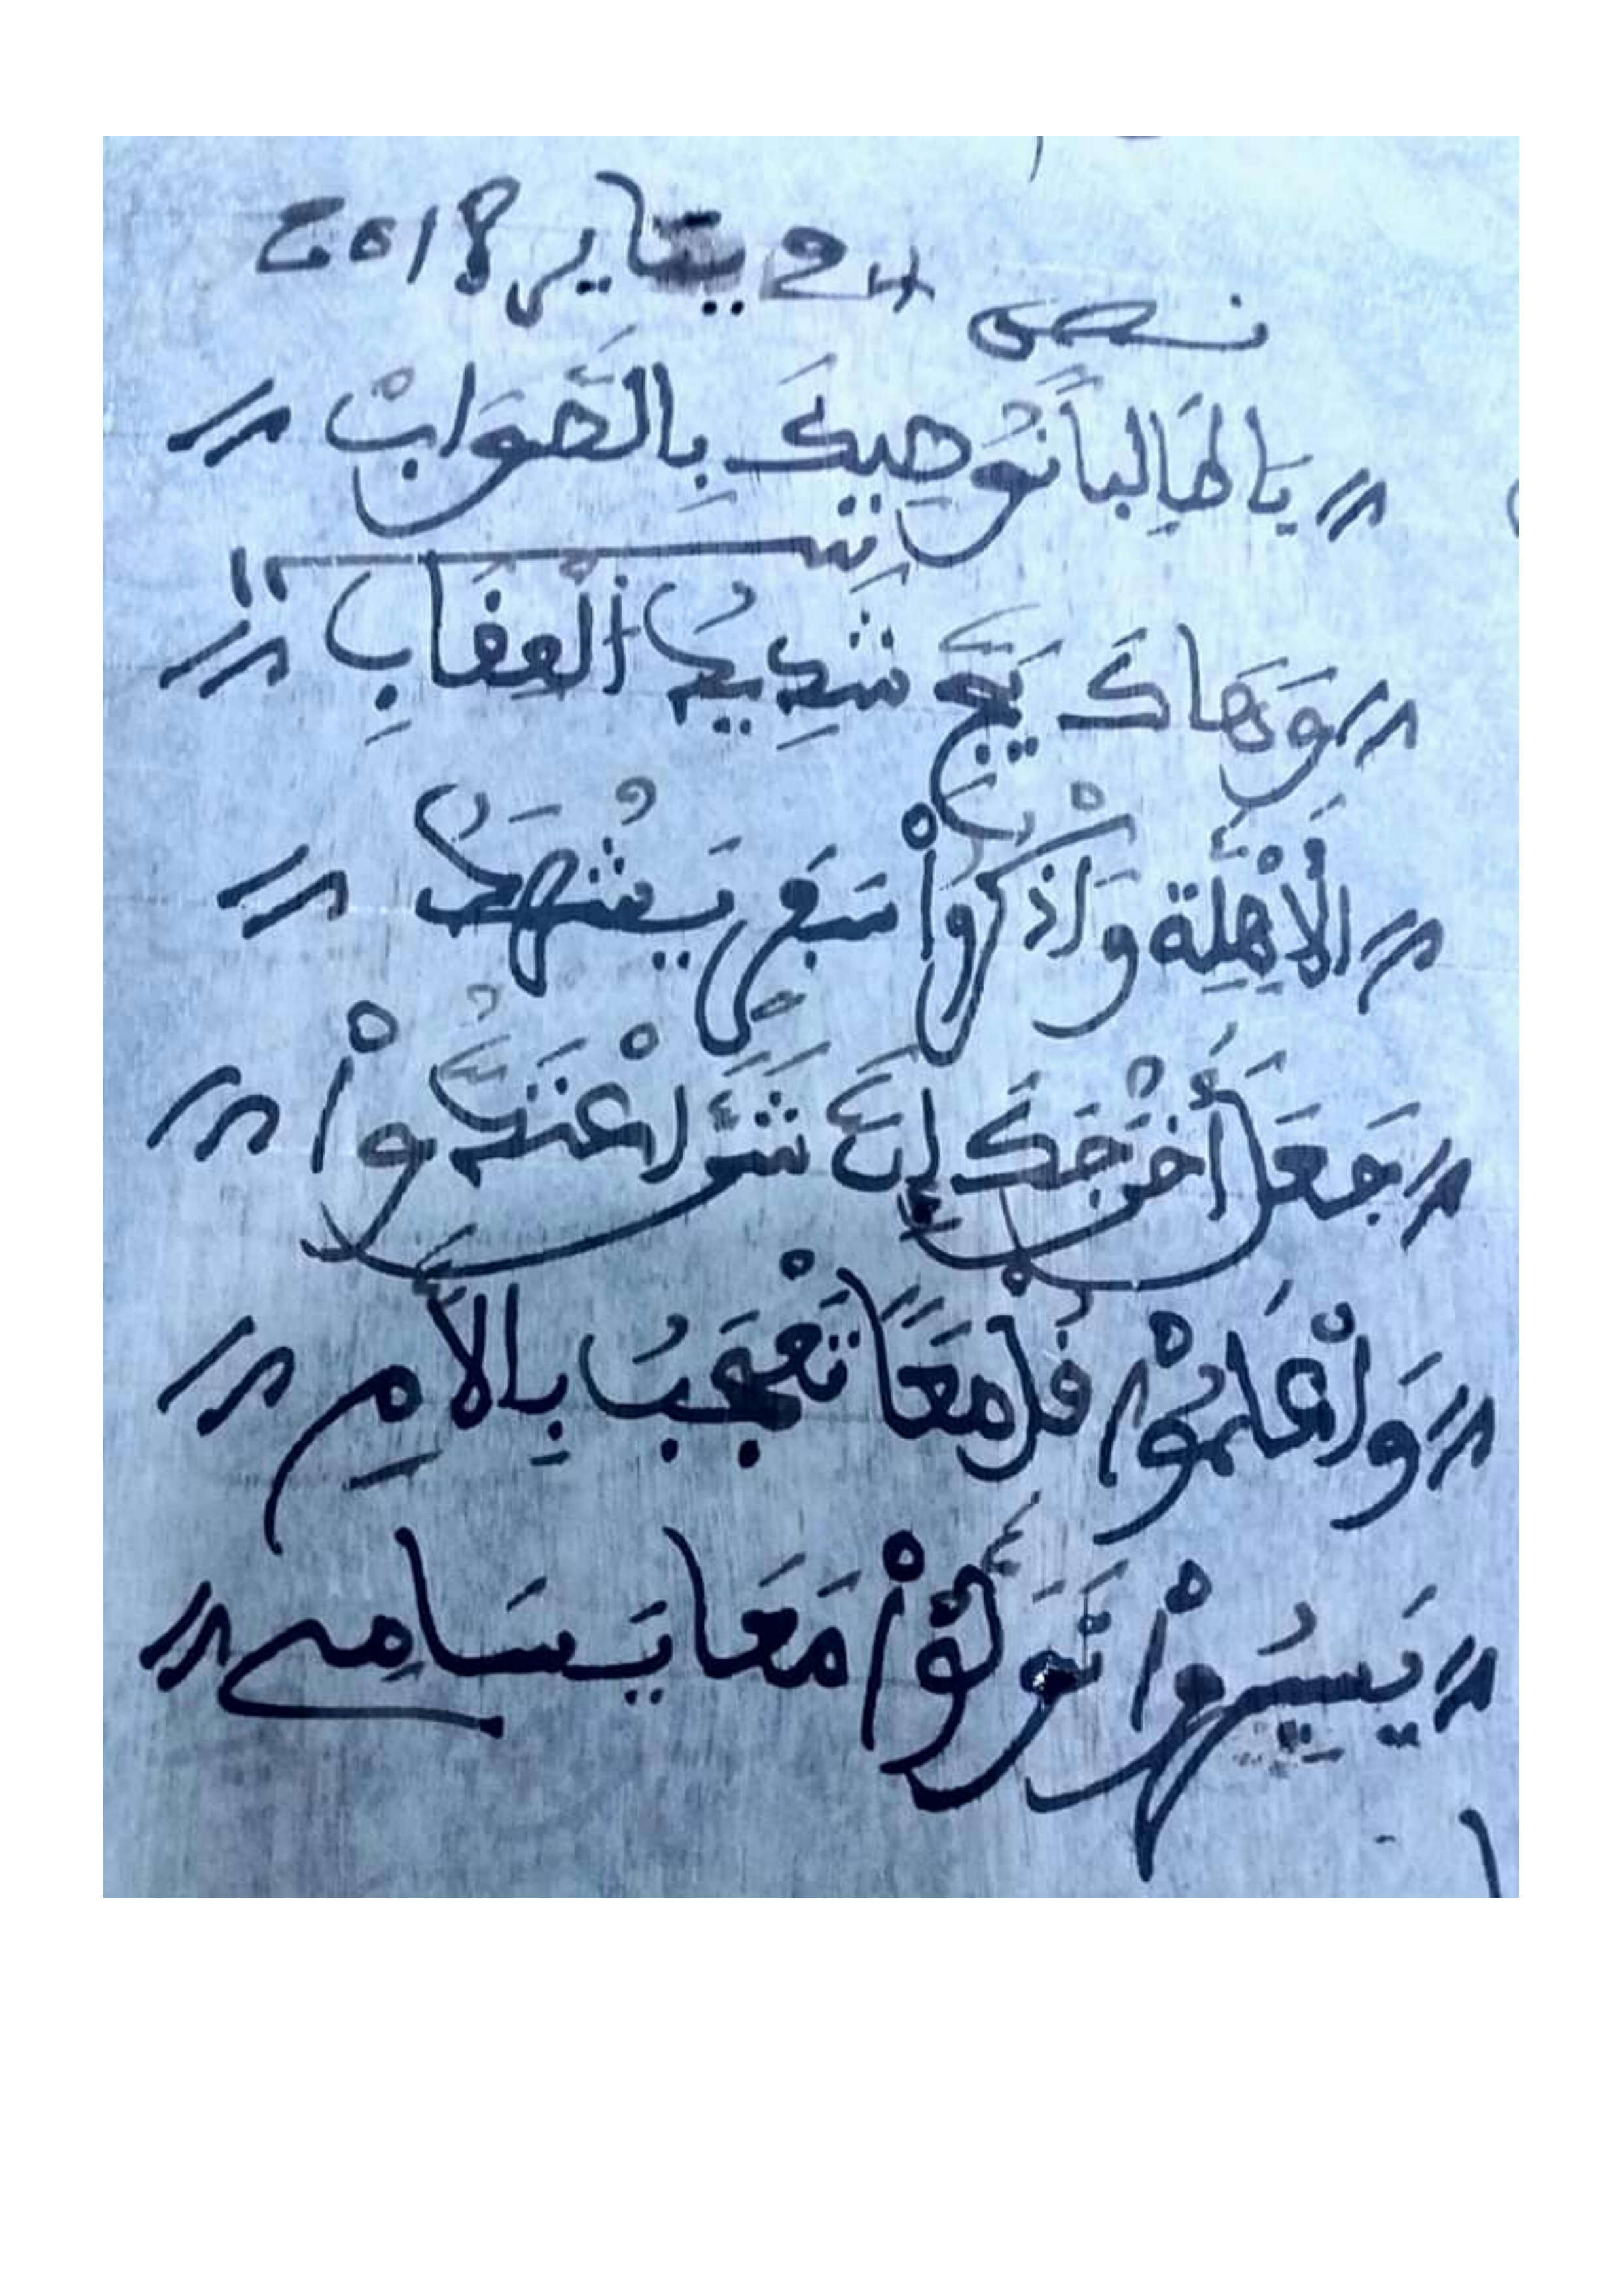 24 يناير 2018
نص
يَا طَالِباً نُوصِيكَ بِالصَّوَابْ
وَهَاكَ يَحَّ شَدِيدُ الْعِفَابِ
الَاهِلَّة وَاذْكُرُواْ سَبَعِ يَشْهَدُ
جَعَلَ أَخْرَجَكَ إِنَّ شَرَّ اعْتَدُّواْ
وَاعْلَمُواْ فُلْ مَعاً تَعْجَبُ بِالَامِ
يَسِيرُواْ تَوَلَّوْاْ مَعَا يَسَامِے